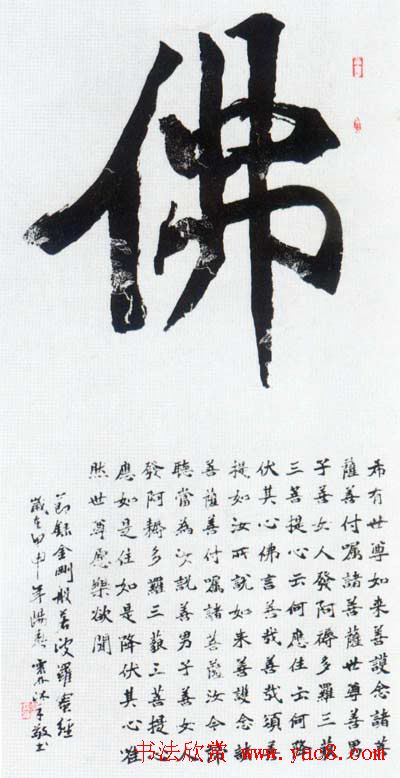 佛
希有世尊如来善護念諸菩
薩善付嘱諸菩薩世尊善男
子善女人發阿耨多羅三藐
三菩提心云何應住云何降
伏其心佛言善哉善哉須菩
提如汝所說如来善護念諸
菩薩善付嘱諸菩薩汝今諦
聽當為汝說善男子善女人
發阿耨多羅三藐三菩提心
應如是住如是降伏其心唯
然世尊愿樂欲聞
节録金剛般若波羅蜜經
歲在甲申年 沐手敬书
书法欣赏
www.yac8.com